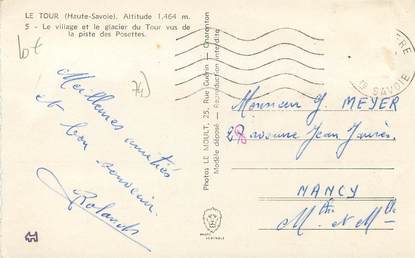 LE TOUR (Haute-Savoie). Altitude 1.464 m.
5 - Le village et le glacier du Tour vus de
la piste des Posettes.
Meilleures amitiés
et bon souvenir.
Rolande
Photos LE MOULT, 25, Rue Guérin - Charenton
Modèle déposé - Reproduction interdite
SAVOIE
Monsieur G. MEYER
28 avenue Jean Jaurès
NANCY
Mthe et Mlle